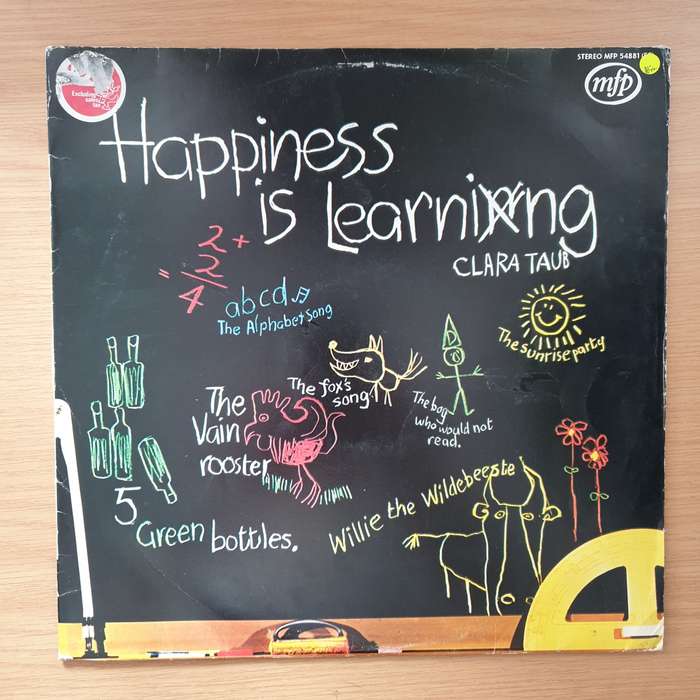 STEREO MFP 54881
mfp
Exclusive
Happiness
is Learning
CLARA TAUB
2 +
2
= 4
abcd
The Alphabet Song
The sunrise party
The fox's
song
The boy
who would not
read.
The
Vain
rooster
5
Green bottles.
Willie the Wildebeeste
D